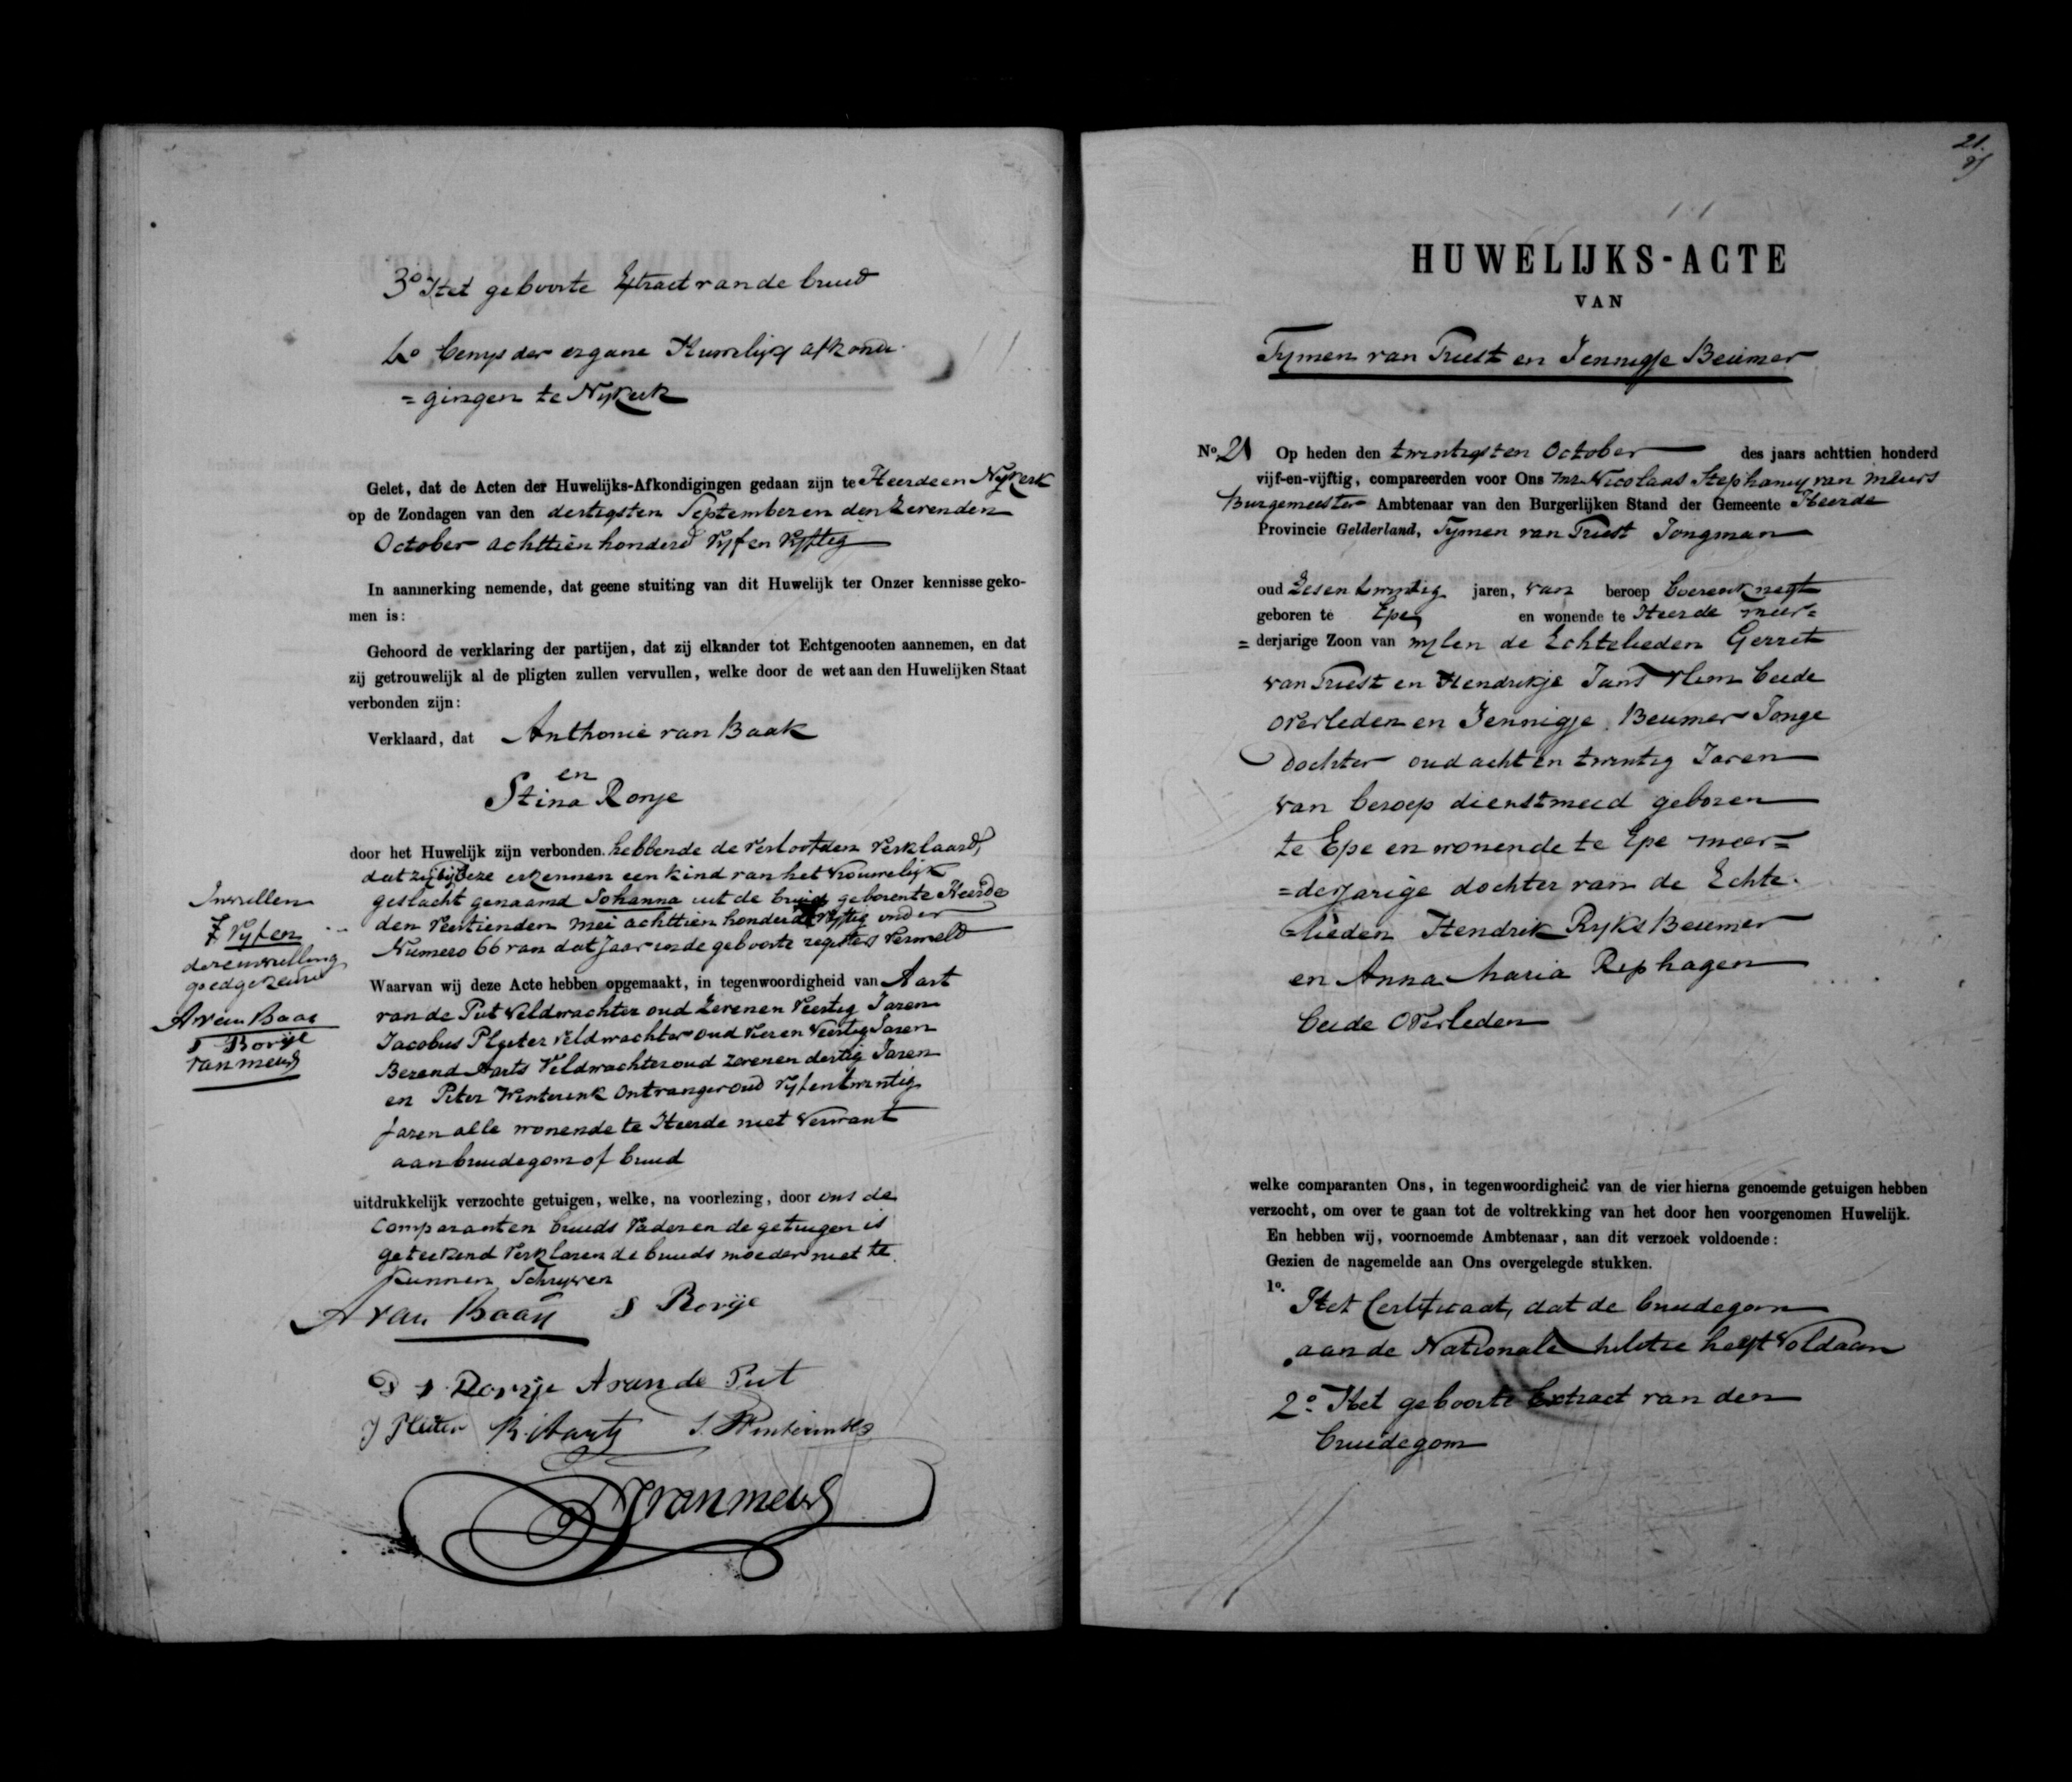 3o Het geboorte Extract van de bruid
4o bewys der ergane Huwelijks afkondi
=gingen te Nykerk
Gelet, dat de Acten der Huwelijks-Afkondigingen gedaan zijn te Heerde en Nykerk
op de Zondagen van den dertigsten September en den Zevenden
October achttien honderd Vyf en Vyftig
In aanmerking nemende, dat geene stuiting van dit Huwelijk ter Onzer kennisse geko-
men is:
Gehoord de verklaring der partijen, dat zij elkander tot Echtgenooten aannemen, en dat
zij getrouwelijk al de pligten zullen vervullen, welke door de wet aan den Huwelijken Staat
verbonden zijn:
Verklaard, dat Anthonie van Baak
en
Stina Rorye
door het Huwelijk zijn verbonden. hebbende de verloofden verklaard,
dat zy by deze erkennen een kind van het vrouwelijk
geslacht genaamd Johanna uit de bruid geboren te Heerde
den veertienden Mei achttien honderd vyftig onder
Numero 66 van dat Jaar in de geboorte registers vermeld
Invullen
Vyfen
deze invulling
goedgekeurd
A van Baak
S Rorije
van Meurs
Waarvan wij deze Acte hebben opgemaakt, in tegenwoordigheid van Aart
van de Put Veldwachter oud Zeven en Veertig Jaren
Jacobus Pluter Veldwachter oud Vier en Veertig Jaren
Berend Aarts Veldwachter oud zeven en dertig Jaren
en Peter Winterink Ontvanger oud Vyf en twintig
Jaren alle wonende te Heerde niet Verwant
aan bruidegom of bruid
uitdrukkelijk verzochte getuigen, welke, na voorlezing, door ons de
Comparanten bruids Vader en de getuigen is
geteekend Verklaren de bruids moeder niet te
kunnen Schryven
A van Baak S Rorije
Rorije A van de Put
J Pluter B. Aarts Winterink
van Meurs
21.
HUWELIJKS-ACTE
VAN
Tymen van Triest en Jennigje Beumer
No. 21 Op heden den twintigsten October des jaars achttien honderd
vijf-en-vijftig, compareerden voor Ons Mr. Nicolaas Stephany van Meurs
Burgemeester Ambtenaar van den Burgerlijken Stand der Gemeente Heerde
Provincie Gelderland, Tymen van Triest Jongman
oud Zes en twintig jaren, van beroep boerenknegt
geboren te Epe en wonende te Heerde meer=
=derjarige Zoon van wylen de Echtelieden Gerrit
van Triest en Hendrikje Jans beide
overleden en Jennigje Beumer Jonge
Dochter oud acht en twintig Jaren
van beroep dienstmeid geboren
te Epe en wonende te Epe meer=
=derjarige dochter van de Echte-
=lieden Hendrik Ryks Beumer
en Anna Maria Riphagen
beide Overleden
welke comparanten Ons, in tegenwoordigheid van de vier hierna genoemde getuigen hebben
verzocht, om over te gaan tot de voltrekking van het door hen voorgenomen Huwelijk.
En hebben wij, voornoemde Ambtenaar, aan dit verzoek voldoende:
Gezien de nagemelde aan Ons overgelegde stukken.
1o.
Het Certificaat, dat de bruidegom
aan de Nationale Militie heeft Voldaan
2o Het geboorte Extract van den
bruidegom